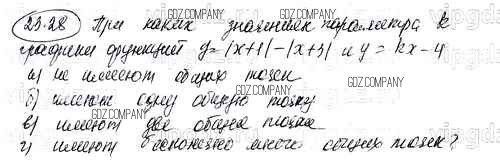 23.28 При каких значениях параметра k
графики функций y=|x+1|-|x+3| и y=kx-4
а) не имеют общих точек
б) имеют одну общую точку
в) имеют две общие точки
г) имеют бесконечно много общих точек?
GDZ.COMPANY
GDZ.COMPANY
GDZ.COMPANY
GDZ.COMPANY
GDZ.COMPANY
GDZ.COMPANY